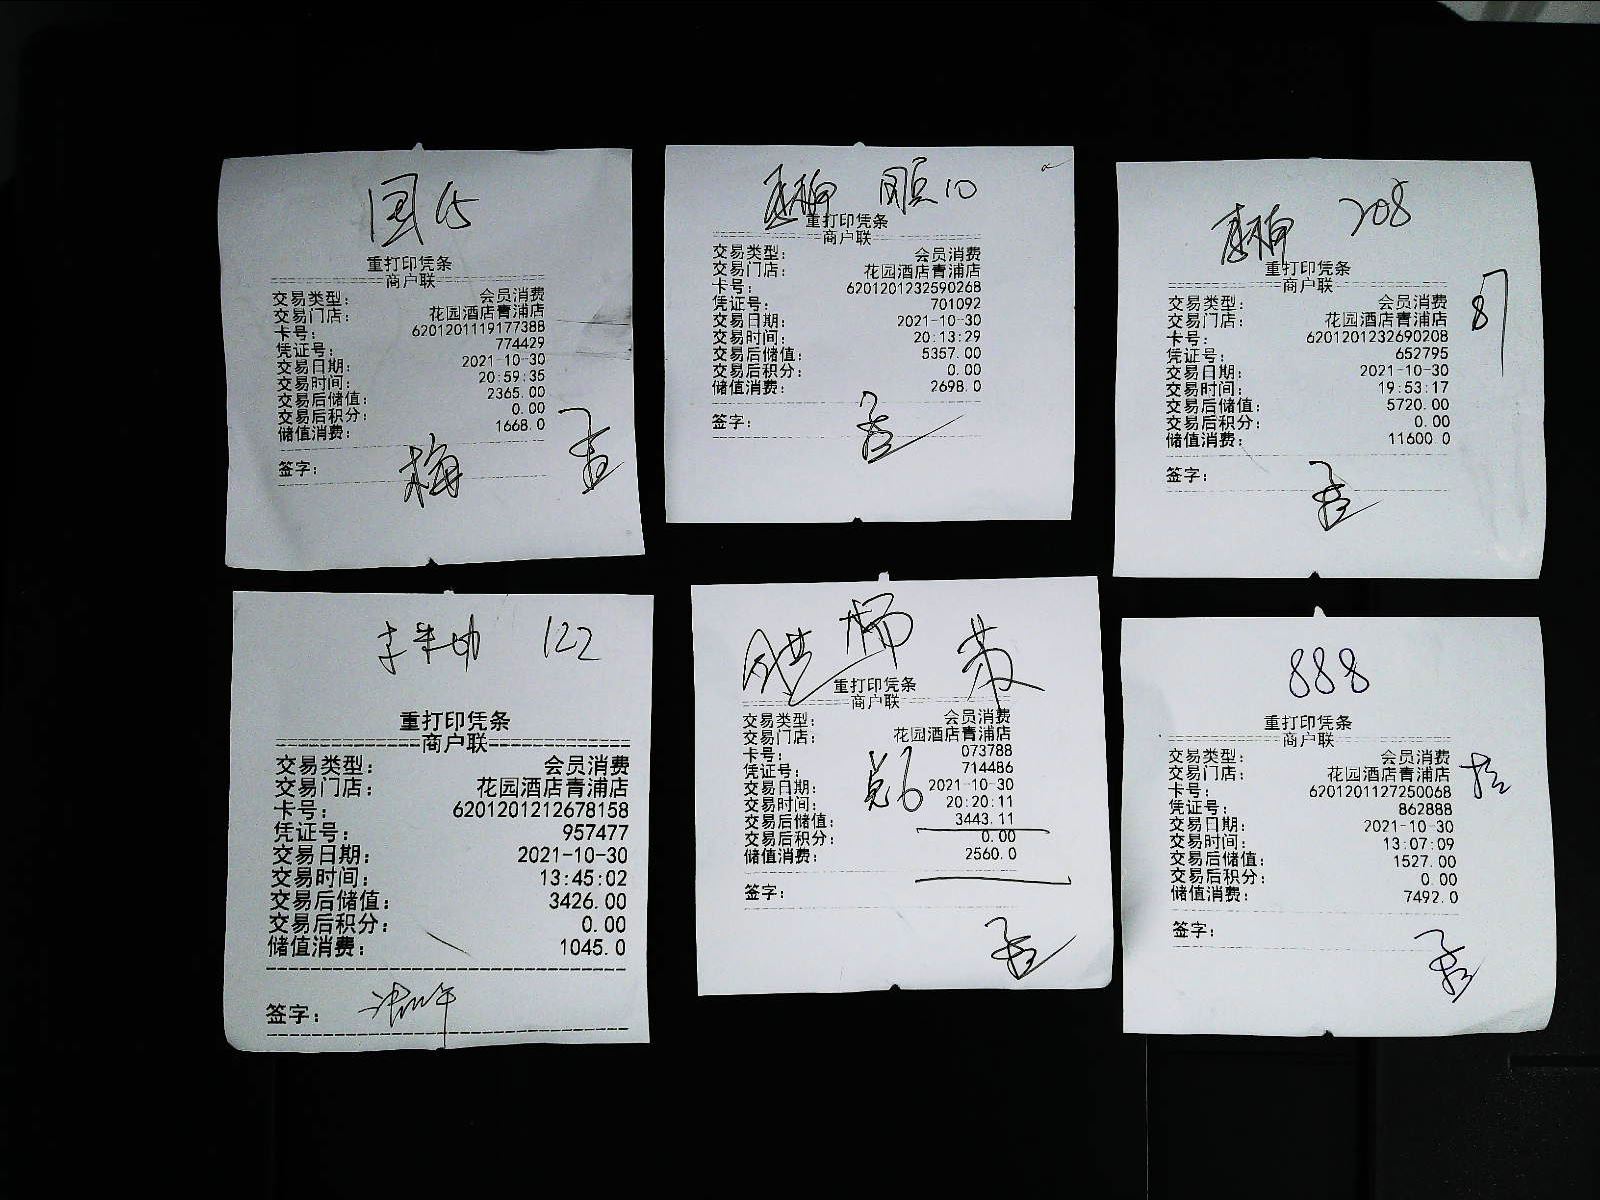 国15
重打印凭条
商户联
交易类型: 会员消费
交易门店: 花园酒店青浦店
卡号: 6201201119177388
凭证号: 774429
交易日期: 2021-10-30
交易时间: 20:59:35
交易后储值: 2365.00
交易后积分: 0.00
储值消费: 1668.0
签字:
梅
10
重打印凭条
商户联
交易类型: 会员消费
交易门店: 花园酒店青浦店
卡号: 6201201232590268
凭证号: 701092
交易日期: 2021-10-30
交易时间: 20:13:29
交易后储值: 5357.00
交易后积分: 0.00
储值消费: 2698.0
签字:
208
重打印凭条
商户联
交易类型: 会员消费
交易门店: 花园酒店青浦店
卡号: 6201201232690208
凭证号: 652795
交易日期: 2021-10-30
交易时间: 19:53:17
交易后储值: 5720.00
交易后积分: 0.00
储值消费: 11600.0
签字:
87
122
重打印凭条
商户联
交易类型: 会员消费
交易门店: 花园酒店青浦店
卡号: 6201201212678158
凭证号: 957477
交易日期: 2021-10-30
交易时间: 13:45:02
交易后储值: 3426.00
交易后积分: 0.00
储值消费: 1045.0
签字:
杨
重打印凭条
商户联
交易类型: 会员消费
交易门店: 花园酒店青浦店
卡号: 073788
凭证号: 714486
交易日期: 2021-10-30
交易时间: 20:20:11
交易后储值: 3443.11
交易后积分: 0.00
储值消费: 2560.0
签字:
888
重打印凭条
商户联
交易类型: 会员消费
交易门店: 花园酒店青浦店
卡号: 6201201127250068
凭证号: 862888
交易日期: 2021-10-30
交易时间: 13:07:09
交易后储值: 1527.00
交易后积分: 0.00
储值消费: 7492.0
签字: